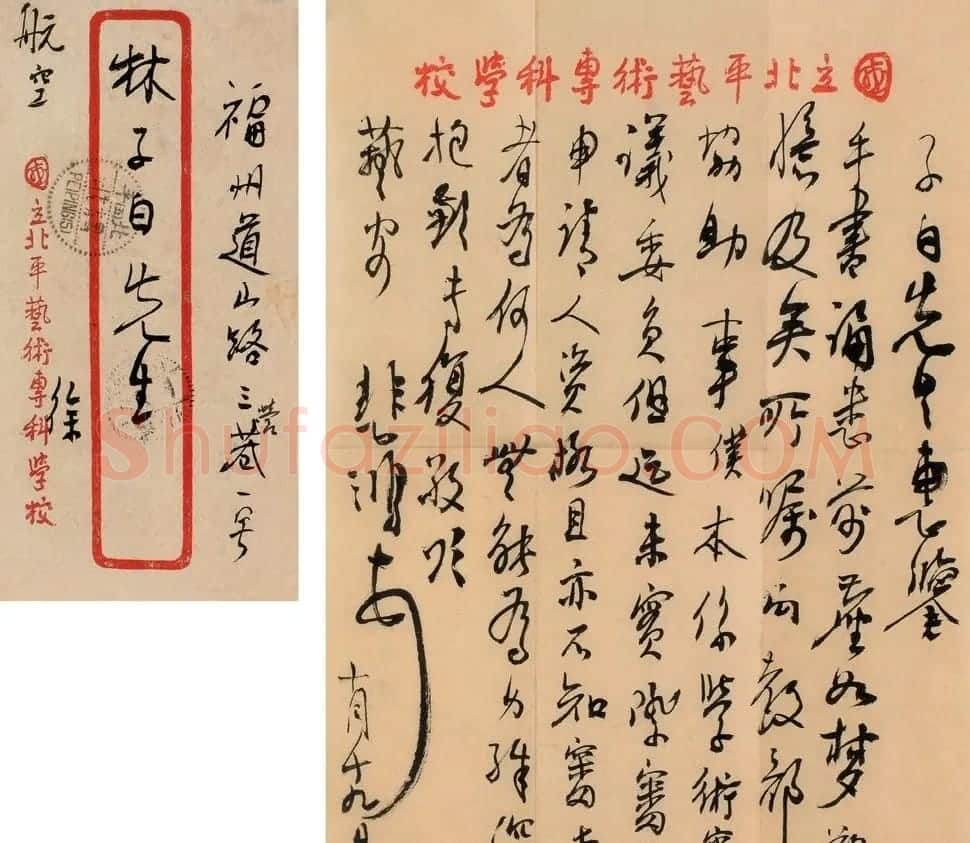 福州道山路三营巷一号
林子白先生
航空
徐
國立北平藝術專科學校
PEIPING
國立北平藝術專科學校
子白先生惠鑒
手書誦悉前塵如夢
憶及矣所嘱向教部
協助事僕本係學術審
議委員但迄未實際審
申請人資格且亦不知審查
者為何人無能為力殊深
抱歉专復敬頌
藝安
悲鴻
十月十九日
Shufaziliao.COM